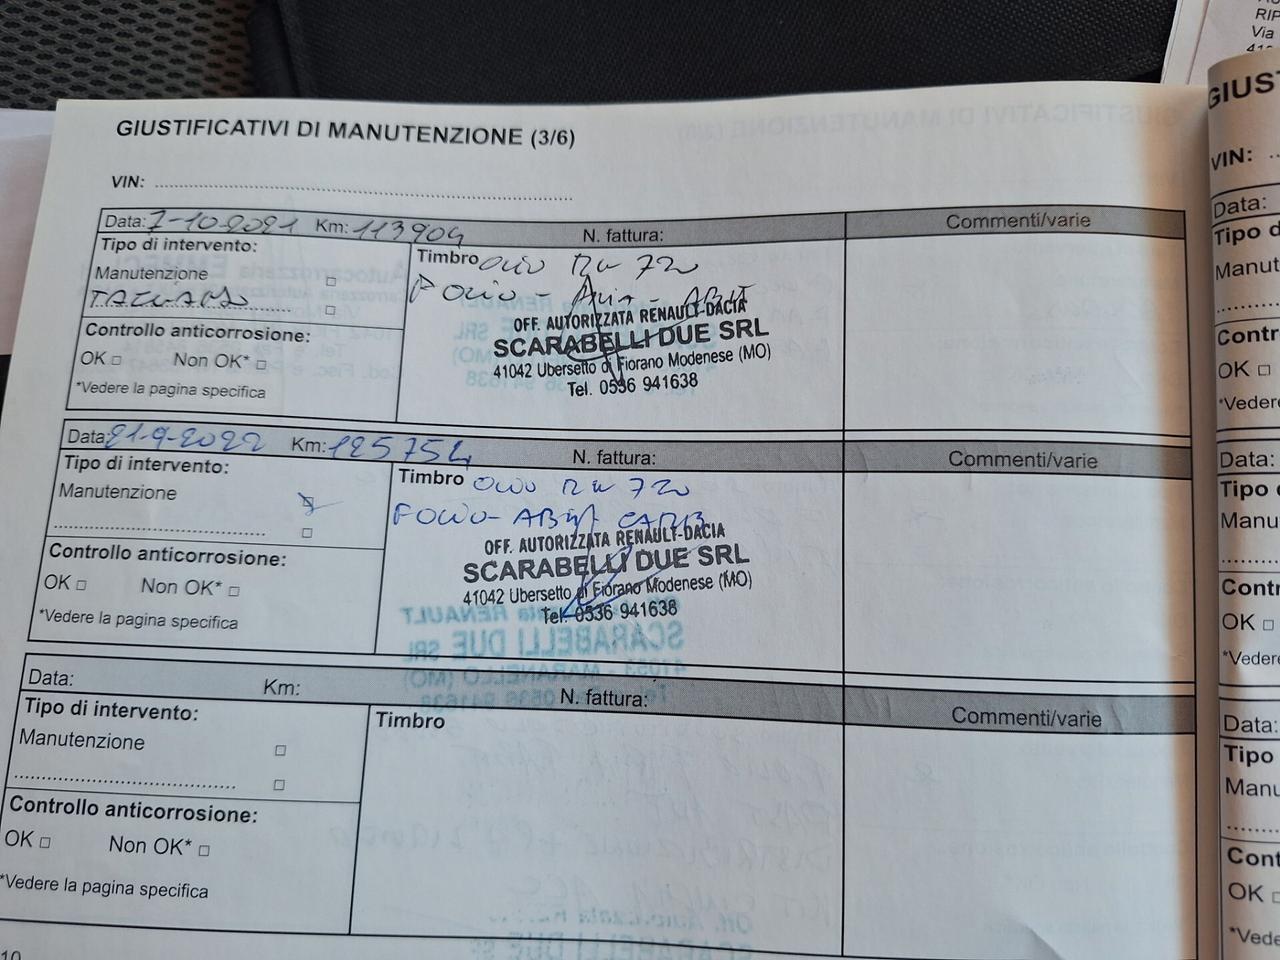 RIP
Via
GIUSTIFICATIVI DI MANUTENZIONE (3/6)
VIN:
Data: 7-10-2021 Km: 113904 N. fattura: Commenti/varie
Tipo di intervento:
Manutenzione □
□
Controllo anticorrosione:
OK □ Non OK* □
*Vedere la pagina specifica
Timbro OLIO RN 720
OFF. AUTORIZZATA RENAULT-DACIA
SCARABELLI DUE SRL
41042 Ubersetto di Fiorano Modenese (MO)
Tel. 0536 941638
Data: 21-9-2022 Km: 125754 N. fattura: Commenti/varie
Tipo di intervento:
Manutenzione
□
Controllo anticorrosione:
OK □ Non OK* □
*Vedere la pagina specifica
Timbro OLIO RN 720
OFF. AUTORIZZATA RENAULT-DACIA
SCARABELLI DUE SRL
41042 Ubersetto di Fiorano Modenese (MO)
Tel. 0536 941638
Data: Km: N. fattura: Commenti/varie
Tipo di intervento:
Manutenzione □
□
Controllo anticorrosione:
OK □ Non OK* □
*Vedere la pagina specifica
Timbro
10
GIUST
VIN:
Data:
Tipo d
Manut
Contr
OK □
*Veder
Data:
Tipo
Manu
Contr
OK □
*Vedere
Data:
Tipo
Manu
Cont
OK □
*Vede